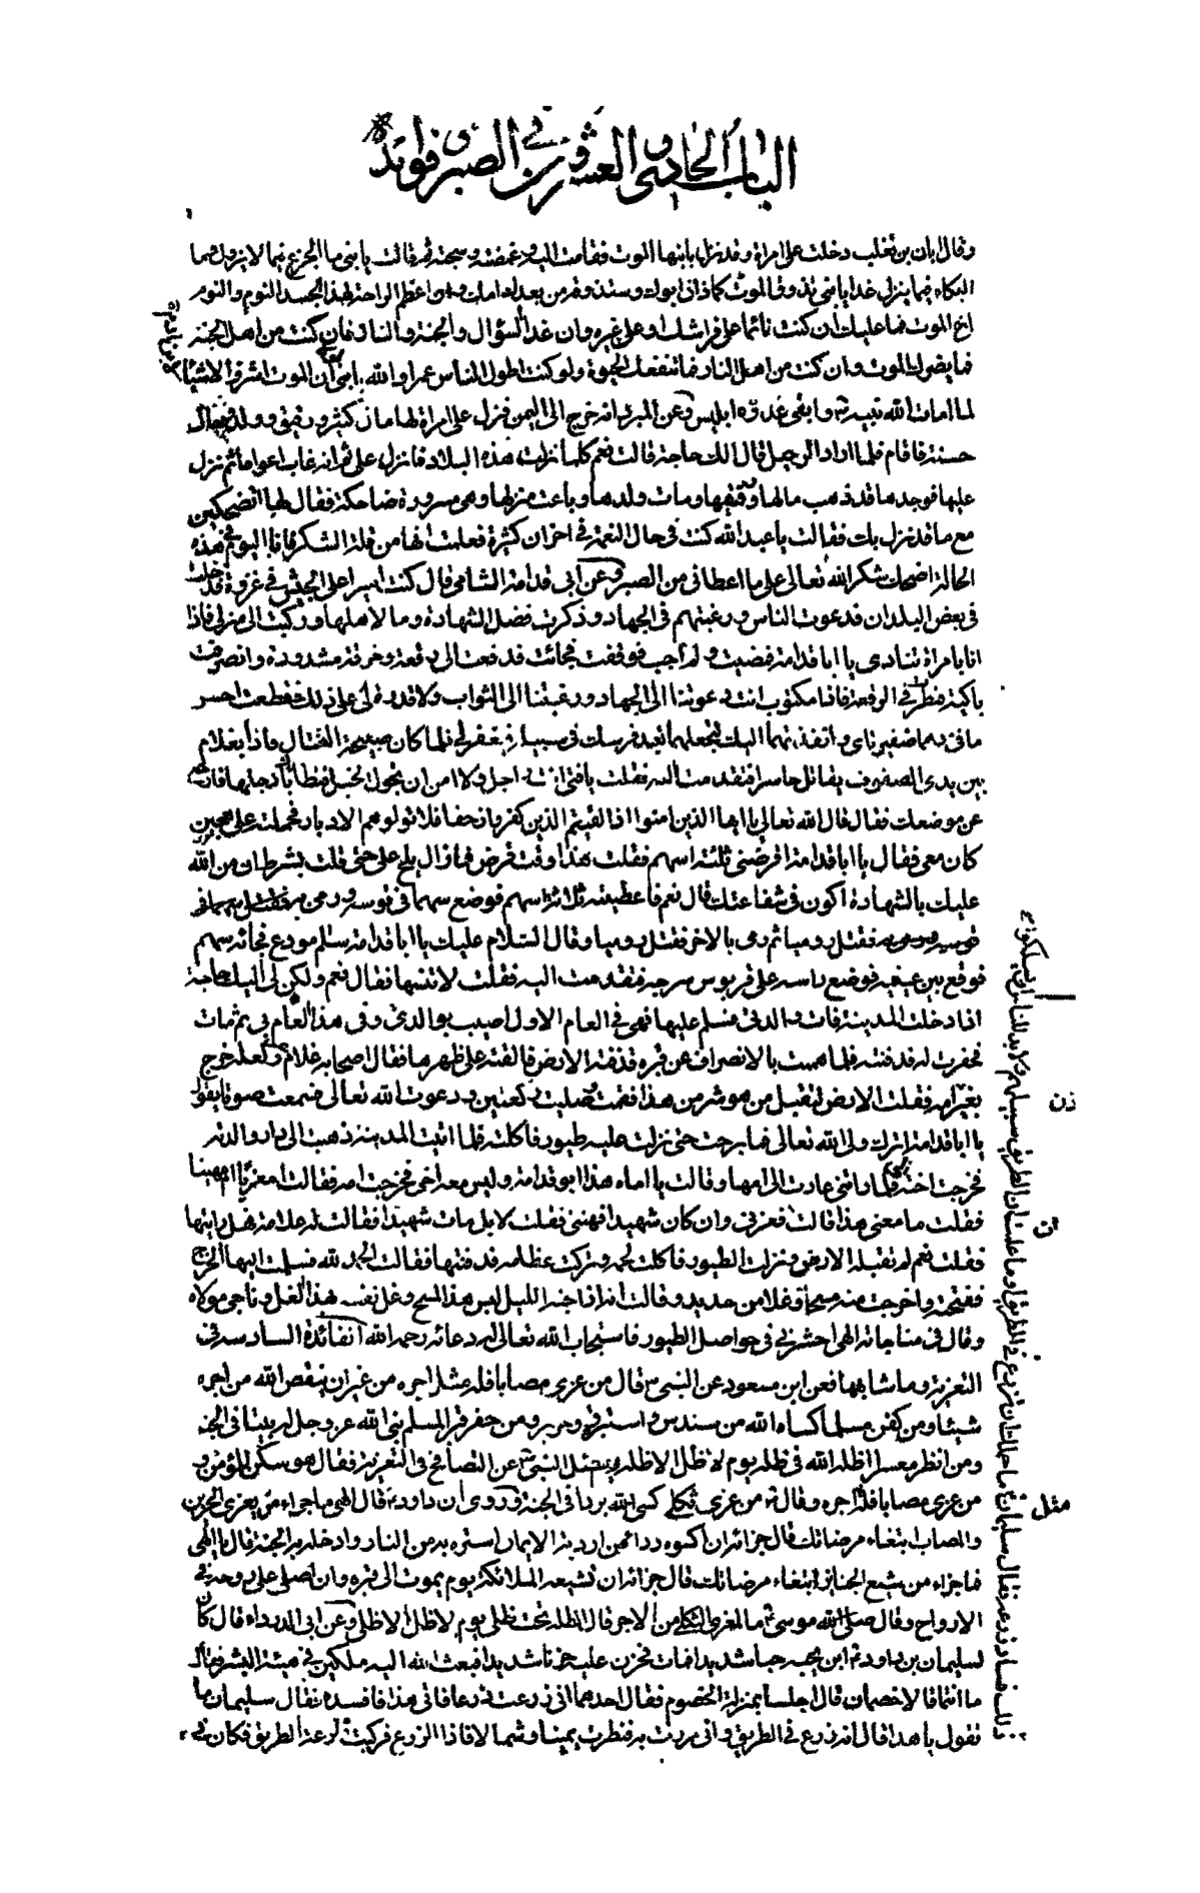 الباب الحادي والعشرون في الصبر وفوائده
وقال ابان بن تغلب دخلت على امراة وقد نزل بابنها الموت فقامت اليه فغمضته وسجته ثم قالت يا بني ما الجزع فيما لا يزول وما
البكاء فيما ينزل غدا يا بني تذوق الموت كما ذاق ابوك وستذوقه من بعدك امك وان اعظم الراحة لهذا الجسد النوم والنوم
اخ الموت فما عليك ان كنت نائما على فراشك او على غيره وان غدا السؤال والجنة والنار فان كنت من اهل الجنة
فما يضرك الموت وان كنت من اهل النار فما تنفعك الحيوة ولو كنت اطول الناس عمرا والله يا بني لولا ان الموت اشرف الاشياء
لما امات الله نبيه وابقى عدوه ابليس وعن المبرد انه خرج الى اليمن فنزل على امراة لها مال كثير ورقيق وولد وحال
حسنة فاقام فلما اراد الرحيل قال الك حاجة قالت نعم كلما نزلت هذه البلاد فانزل علي ثم انه غاب اعواما ثم نزل
عليها فوجدها قد ذهب مالها ورقيقها ومات ولدها وباعت منزلها وهي مسرورة ضاحكة فقال لها اتضحكين
مع ما قد نزل بك فقالت يا عبد الله كنت في حال النعمة في احزان كثيرة فعلمت انها من قلة الشكر فانا اليوم في هذه
الحالة اضحك شكرا لله تعالى على ما اعطاني من الصبر وعن ابي قدامة الشامي قال كنت اميرا على الجيش في غزوة فدخلت
في بعض البلدان فدعوت الناس ورغبتهم في الجهاد وذكرت فضل الشهادة وما لاهلها وركبت الى منزلي فاذا
انا بامراة تنادي يا ابا قدامة فمضيت ولم اجب فوقفت فجائت قد دفعت الى رقعة وخرقة مشدودة وانصرفت
باكية فنظرت في الرقعة فاذا مكتوب انت دعوتنا الى الجهاد ورغبتنا الى الثواب ولا قدرة لي على ذلك فقطعت احسن
ما في وهما ضفيرتاي وانفذتهما اليك لتجعلهما قيد فرسك في سبيل ربه يغفر لي فلما كان صبيحة القتال فاذا بغلام
بين يدي الصفوف يقاتل حاسرا فتقدمت اليه فقلت يا فتى انت راجل ولا امن ان تجول الخيل فتطأك بارجلها فارجع
عن موضعك فقال قال الله تعالى يا ايها الذين امنوا اذا لقيتم الذين كفروا زحفا فلا تولوهم الادبار فحملته على هجين
كان معي فقال يا ابا قدامة اقرضني ثلثة اسهم فقلت هذا وقت قرض فما زال يلح علي حتى قلت بشرط ان من الله
عليك بالشهادة اكون في شفاعتك قال نعم فاعطيته ثلاثة اسهم فوضع سهما في قوسه ورمى به فقتل
فقتل روميا ثم رمى بالاخر فقتل روميا وقال السلام عليك يا ابا قدامة سلام مودع فجائه سهم
فوقع بين عينيه فوضع راسه على قربوس سرجه فتقدمت اليه فقلت لا تنسها فقال نعم ولكن لي اليك حاجة
اذا دخلت المدينة فات والدتي فسلم عليها فهي في العام الاول اصيبت بوالدي وفي هذا العام بي ثم مات
فحفرت له فدفنته فلما هممت بالانصراف عن قبره قذفته الارض فالقته على ظهرها فقال اصحابه غلام ولعله خرج
بغير اذن امه فقلت الارض لتقبل من هو شر من هذا فقمت وصليت ركعتين ودعوت الله تعالى فسمعت صوتا يقول
يا ابا قدامة اترك ولي الله تعالى فما برحت حتى نزلت عليه طيور فاكلته فلما اتيت المدينة ذهبت الى دار والدته
فخرجت اخته فلما راتني عادت الى امها وقالت يا اماه هذا ابو قدامة وليس معه اخي فخرجت امه فقالت امعزيا ام مهنيا
فقلت ما معنى هذا قالت ان مات فعزني وان كان شهيدا فهنني فقلت لا بل مات شهيدا فقالت له علامة فهل رايتها
فقلت نعم لم تقبله الارض ونزلت الطيور فاكلت لحمه وتركت عظامه فدفنتها فقالت الحمد لله فسلمت اليها الخرج
ففتحته واخرجت منه مسحا وغلا من حديد وقالت انه اذا جنه الليل لبس هذا المسح وغل نفسه بهذا الغل وناجى مولاه
وقال في مناجاته الهي احشرني في حواصل الطيور فاستجاب الله تعالى له دعائه رحمه الله الفائدة السادسة في
التعزية وما شابهها فعن ابن مسعود عن النبي ص قال من عزى مصابا فله مثل اجره من غير ان ينقص الله من اجره
شيئا ومن كفن مسلما كساه الله من سندس واستبرق وحرير ومن حفر قبرا لمسلم بنى الله عز وجل له بيتا في الجنة
ومن انظر معسرا اظله الله في ظله يوم لا ظل الا ظله وسئل النبي ص عن التصافح في التعزية فقال هو سكن للمؤمن و
من عزى مصابا فله مثل اجره وقال من عزى ثكلى كسي بردا في الجنة وروى ان داود قال الهي ما جزاء من يعزي الحزين
والمصاب ابتغاء مرضاتك قال جزائه ان اكسوه رداء من اردية الايمان استره به من النار وادخله به الجنة قال يا الهي
فما جزاء من شيع الجنائز ابتغاء مرضاتك قال جزائه ان تشيعه الملائكة يوم يموت الى قبره وان اصلي على روحه في
الارواح وقال موسى ما لمعزي الثكلى من الاجر قال اظله تحت ظلي يوم لا ظل الا ظلي وعن ابي الدرداء قال كان
لسليمان بن داود ابن يحبه حبا شديدا فمات فحزن عليه حزنا شديدا فبعث الله اليه ملكين في هيئة البشر فقال
ما انتما قالا خصمان قال اجلسا بمنزلة الخصوم فقال احدهما اني زرعت زرعا فاتى هذا فافسده فقال سليمان ما
تقول يا هذا قال انه زرع في الطريق واني مررت به فنظرت يمينا وشمالا فاذا الزرع فركبت قارعة الطريق فكان في
ذلك فساد زرعه فقال سليمان ما حملك ان تزرع في الطريق اوما علمت ان الطريق سبيلهم ولا بد للناس ان يسلكوا
ذن
ن
مثل